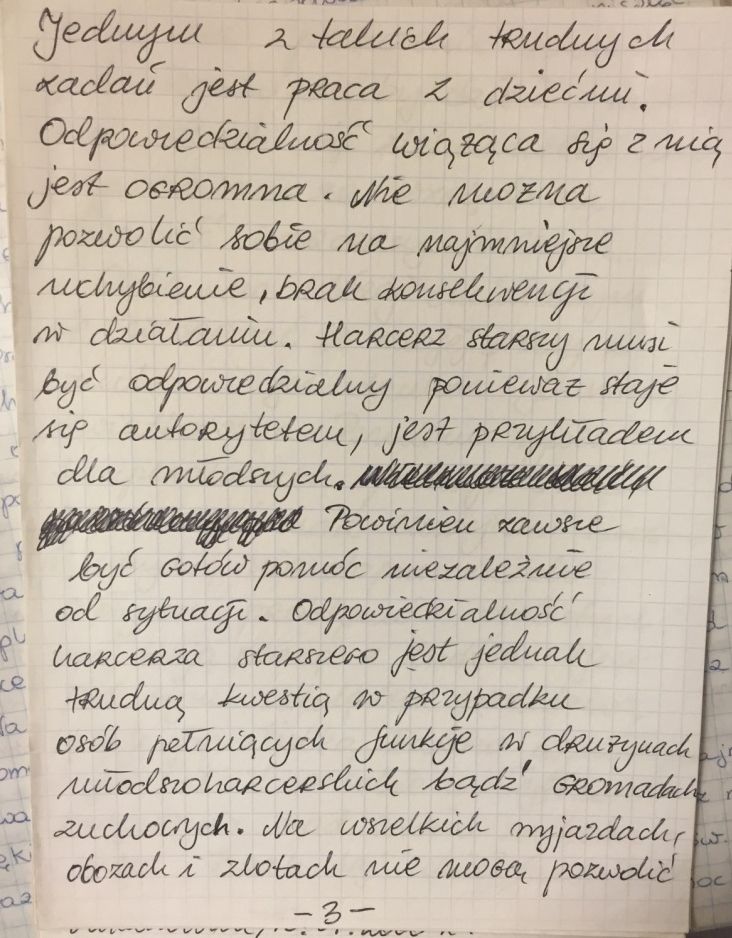 Jednym z takich trudnych
zadań jest praca z dziećmi.
Odpowiedzialność wiążąca się z nią
jest ogromna. Nie można
pozwolić sobie na najmniejsze
uchybienie, brak konsekwencji
w działaniu. Harcerz starszy musi
być odpowiedzialny ponieważ staje
się autorytetem, jest przykładem
dla młodszych.
Powinien zawsze
być gotów pomóc niezależnie
od sytuacji. Odpowiedzialność
harcerza starszego jest jednak
trudną kwestią w przypadku
osób pełniących funkcje w drużynach
młodszoharcerskich bądź gromadach
zuchowych. Na wszelkich wyjazdach,
obozach i zlotach nie mogą pozwolić
-3-